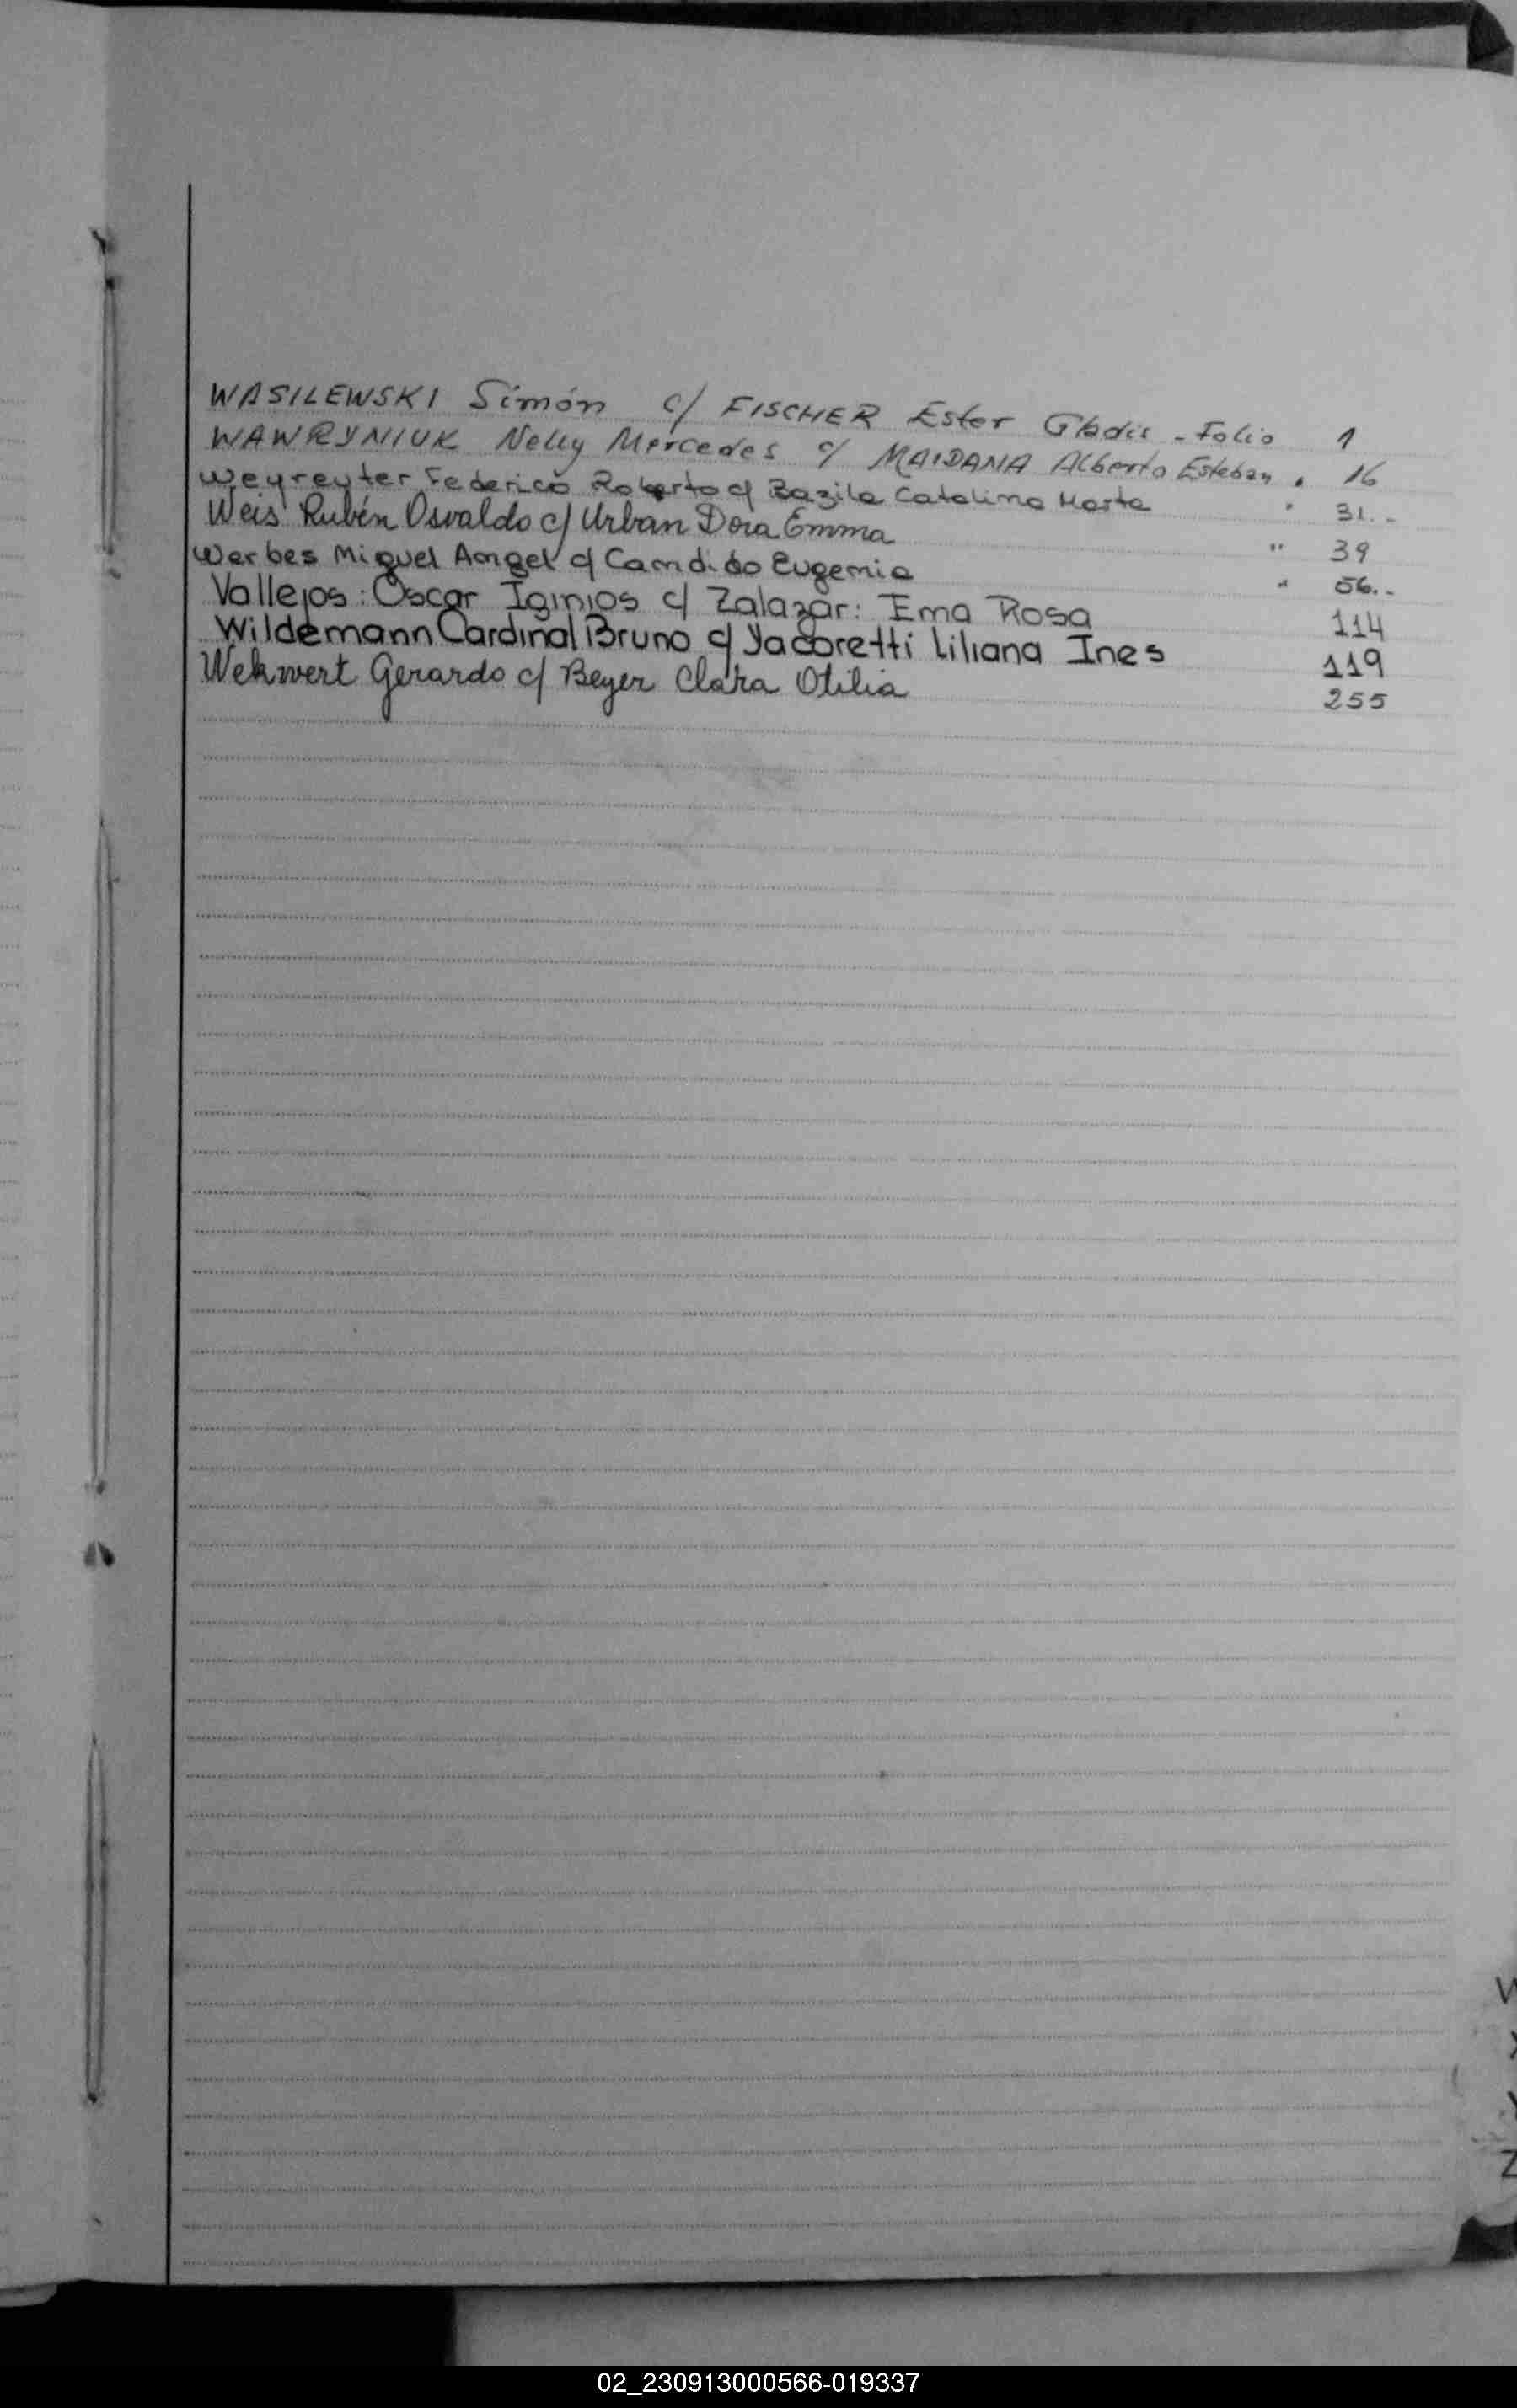 WASILEWSKI Simón c/ FISCHER Ester Gladis - Folio 1
WAWRYNIUK Nelly Mercedes c/ MAIDANA Alberto Esteban " 16
Weyreyter Federico Roberto c/ Bazila Catalina Marta " 31.-
Weis Rubén Osvaldo c/ Urban Dora Emma " 39
Werbes Miguel Angel c/ Candido Eugenia " 56.-
Vallejos: Oscar Iginios c/ Zalazar: Ema Rosa 114
Wildemann Cardinal Bruno c/ Yacoretti Liliana Ines 119
Wekwert Gerardo c/ Beyer Clara Otilia 255
W
X
Y
Z
02_230913000566-019337